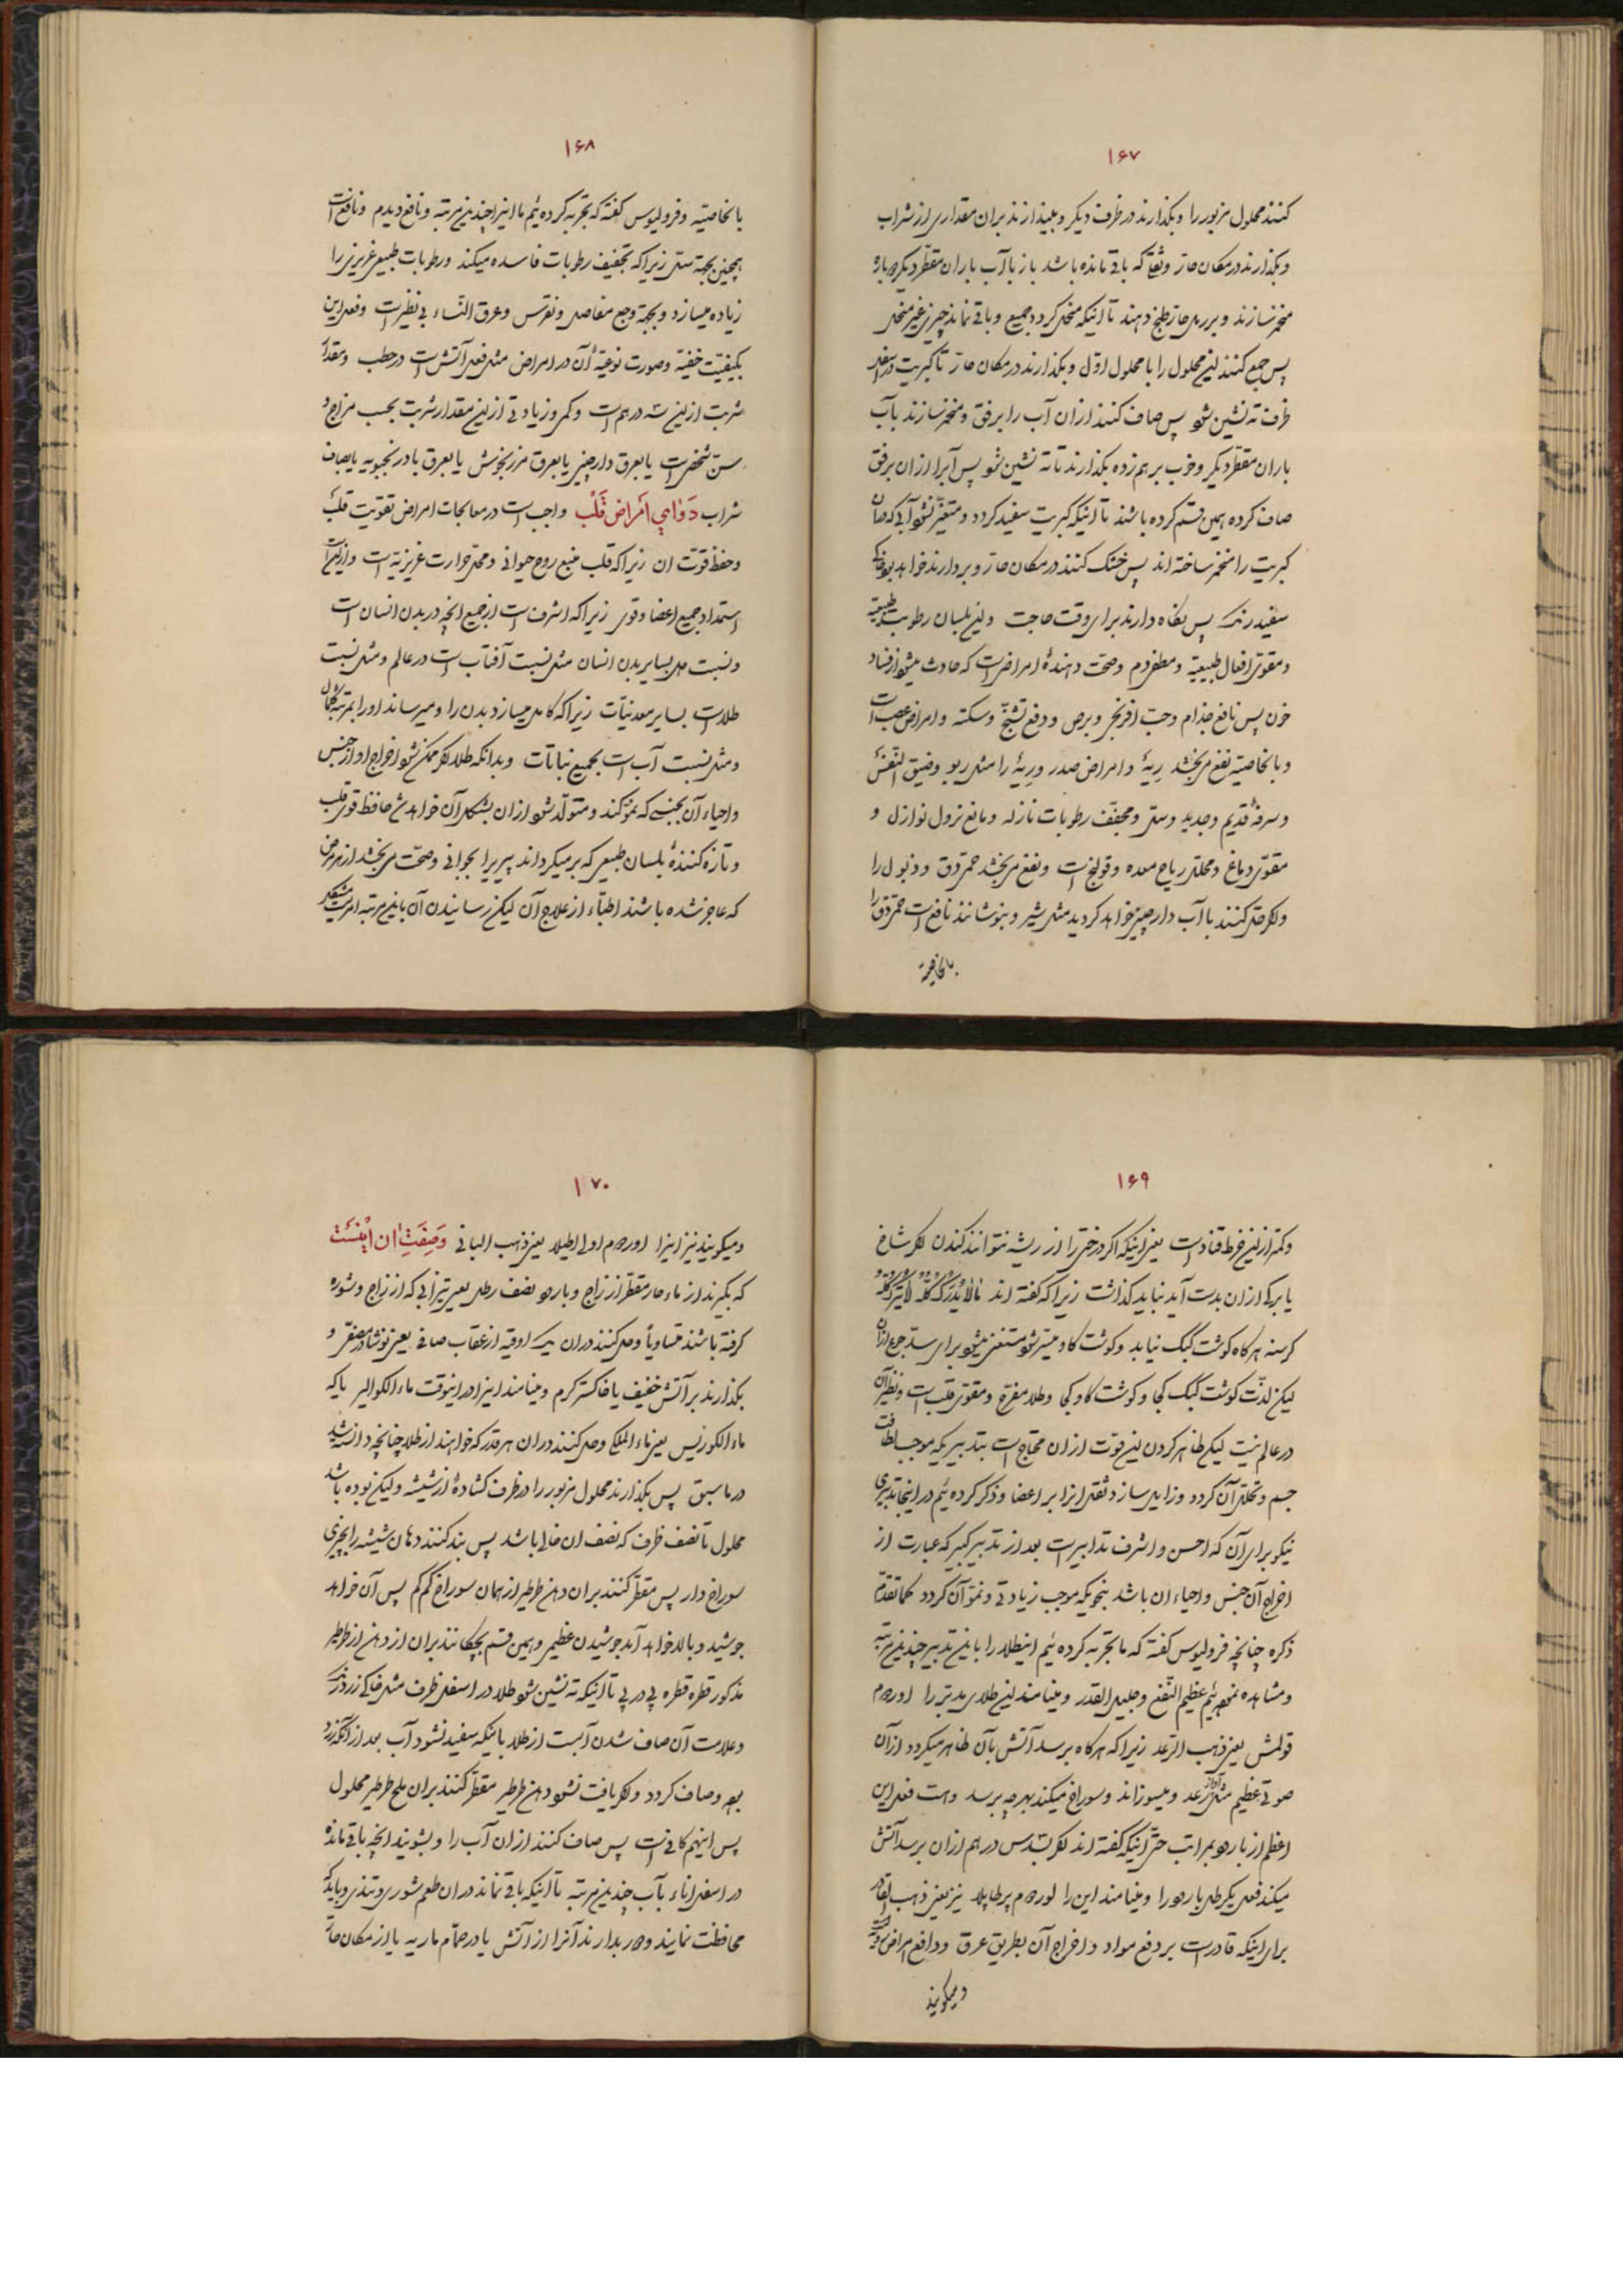 ۱۶۷
کنند محلول مزبور را و بگذارند در ظرف دیگر و بیندازند بران مقداری از شراب
و بگذارند در مکان حارّ و ثفلی که باقی مانده باشد باز با آب باران مقطّر دیگر دوباره
منخمر سازند و بر رمل حارّ طبخ دهند تا اینکه منحلّ کردد جمیع و باقی نماند چیزی غیر منحل
پس جمع کنند این محلول را با محلول اوّل و بگذارند در مکان حارّ تا کبریت در اسفل
ظرف ته نشین شود پس صاف کنند ازان آب را برفق و منخمر سازند بآب
باران مقطّر دیگر و خوب بر هم زده بگذارند تا ته نشین شود پس آنرا ازان برفق
صاف کرده بهمین قسم کرده باشند تا اینکه کبریت سفید کردد و متغیّر نشود آبی که بآن
کبریت را منخمر ساخته اند پس خشک کنند در مکان حارّ و بردارند خواهد بود خاکی
سفید رنک پس نکاه دارند برای وقت حاجت و این بلسان رطوبت طبیعیّه
و مقوّی افعال طبیعیّه و مطهّر دم و صحّت دهندهٔ امراضی است که حادث میشود از فساد
خون پس نافع جذام و حبّ افرنجی و برص و دفع تشنّج و سکته و امراض عصب است
و بالخاصیّه نفع میبخشد ریهٔ و امراض صدر و ریهٔ را مثل ربو و ضیق النّفس
و سرفهٔ قدیم و جدید و سلّ و مجفّف رطوبات نازله و مانع نزول نوازل و
مقوّی دماغ و محلّل ریاح معده و قولنج است و نفع میبخشد حمّی دق و ذبول را
و اکر حل کنند با آب دارچینی خواهد کردید مثل شیر و بنوشانند نافع است حمّی دق را
بالخاصیّه
۱۶۸
بالخاصیّه و فرولیوس کفته که تجربه کرده ئیم ما اینرا چندین مرتبه و نافع دیدم و نافع است
همچنین بجهة سل زیراکه تجفیف رطوبات فاسده میکند و رطوبات طبیعی غریزی را
زیاده میسازد و بجهة وجع مفاصل و نقرس و عرق النّساء بی نظیر است و فعل این
بکیفیّت خفیّه و صورت نوعیّهٔ آن در امراض مثل فعل آتش است در حطب و مقدار
شربت ازین سه درهم است و کمی و زیادتی ازین مقدار شربت بحسب مزاج و
سنّ شخص است یا بعرق دارچینی یا بعرق مرزنجوش یا بعرق بادرنجبویه یا بصاف
شراب دَوٰایِ اَمْراضِ قَلْب واجب است در معالجات امراض تقویت قلب
و حفظ قوّت ان زیراکه قلب منبع روح حیوانی و محلّ حرارت غریزیّه است و ازینست
استمداد جمیع اعضا و قوی زیراکه اشرف است از جمیع انچه در بدن انسان است
و نسبت دل بسایر بدن انسان مثل نسبت آفتاب است در عالم و مثل نسبت
طلا است بسایر معدنیّات زیراکه کامل میسازد بدن را و میرساند او را بمرتبهٔ کمال
و مثل نسبت آب است بجمیع نباتات و بدانکه طلا اکر ممکن شود اخراج او از جنس
و احیاء آن بجنسی که نموّ کند و متولّد شود ازان بشکل آن خواهد شد حافظ قوی قلب
و تازه کنندهٔ بلسان طبیعی که برمیکرداند پیریرا بجوانی و صحّت میبخشد از هر مرض
که عاجز شده باشند اطبّاء از علاج آن لیکن رسانیدن آن باین مرتبه امریست مشکل
۱۶۹
و کمتر ازین خرط قتاد است یعنی اینکه اکر درختی را از ریشه نتوانند کندن اکر شاخ
یا برکی ازان بدست آید نباید کذاشت زیراکه کفته اند مٰالٰا یُدْرَکُ کُلُّهُ لٰا یُتْرَکُ کُلُّهُ
کرسنه هرکاه کوشت کبک نیابد و کوشت کاو میسّر شود مستغنی میشود برای سدّ جوع ازان
لیکن لذّت کوشت کبک کجا و کوشت کاو کجا و طلا مفرّح و مقوّی قلب است و نظیر آن
در عالم نیست لیکن ظاهر کردن این قوّت ازان محتاج است بتدبیریکه موجب لطافت
جسم و تحلّل آن کردد و زایل سازد ثقل انرا بر اعضا و ذکر کرده ئیم در اینجا تدبیری
نیکو برای آن که احسن و اشرف تدابیر است بعد از تدبیر کبیر که عبارت از
اخراج آن جنس و احیاء ان باشد بنحویکه موجب زیادتی و نموّ آن کردد کما تقدّم
ذکره چنانچه فرولیوس کفته که ما تجربه کرده ئیم اینطلا را باین تدبیر چندین مرتبه
و مشاهده نموده ئیم عظیم النّفع و جلیل القدر و مینامند این طلای مدبّر را اوروم
فولمنس یعنی ذهب الرّعد زیراکه هرکاه برسد آتش بآن ظاهر میکردد ازان
صوتی عظیم مثل آواز رعد و میسوزاند و سوراخ میکند بهرچه برسد و هست فعل این
اعظم از بارود بمراتب حتّی اینکه کفته اند اکر بسدس درهم ازان برسد آتش
میکند فعل یکرطل بارود را و مینامند این را اوروم پرطابلا نیز یعنی ذهب القادر
برای اینکه قادر است بر دفع مواد و اخراج آن بطریق عرق و دافع امراض
و میکویند
۱۷۰
و میکویند نیز اینرا اوروم اولاطیلا یعنی ذهب الباقی وَصِفَتِ اٰن اٖینَسْت
که بکیرند از ماء حار مقطّر از زاج و بارود نصف رطل یعنی تیزابی که از زاج و شوره
کرفته باشند متساویاً و حل کنند دران یک اوقیه از عقاب صافی یعنی نوشادر مصفّی و
بگذارند بر آتش خفیف یا خاکستر کرم و مینامند اینرا در اینوقت ماء الکوالیر یا که
ماء الکورنس یعنی ماء الملکی و حل کنند دران هر قدر که خواهند از طلا چنانچه دانسته شد
در ما سبق پس بگذارند محلول مزبور را در ظرف کشادهٔ از شیشه و لیکن بوده باشد
محلول تا نصف ظرف که نصف ان خالی باشد پس بند کنند دهان شیشه را بچیزی
سوراخ دار پس مقطّر کنند بران دهن طرطیر از همان سوراخ کم کم پس آن خواهد
جوشید و بالا خواهد آمد جوشیدن عظیمی و بهمین قسم بچکانند بران از دهن از طرطیر
مذکور قطره قطره پی در پی تا اینکه ته نشین شود طلا در اسفل ظرف مثل خاکی زرد رنک
و علامت آن صاف شدن آبست از طلا باینکه سفید شود آب بعد از آنکه زرد
بود و صاف کردد و اکر یافت نشود دهن طرطیر مقطّر کنند بران ملح طرطیر محلول
پس اینهم کافی است پس صاف کنند ازان آب را و بشویند انچه باقی مانده
در اسفل اناء بآب چندین مرتبه تا اینکه باقی نماند دران طعم شوری و تندی و باید که
محافظت نمایند و دور بدارند آنرا از آتش یا در حمّام ماریه یا از مکان حارّ